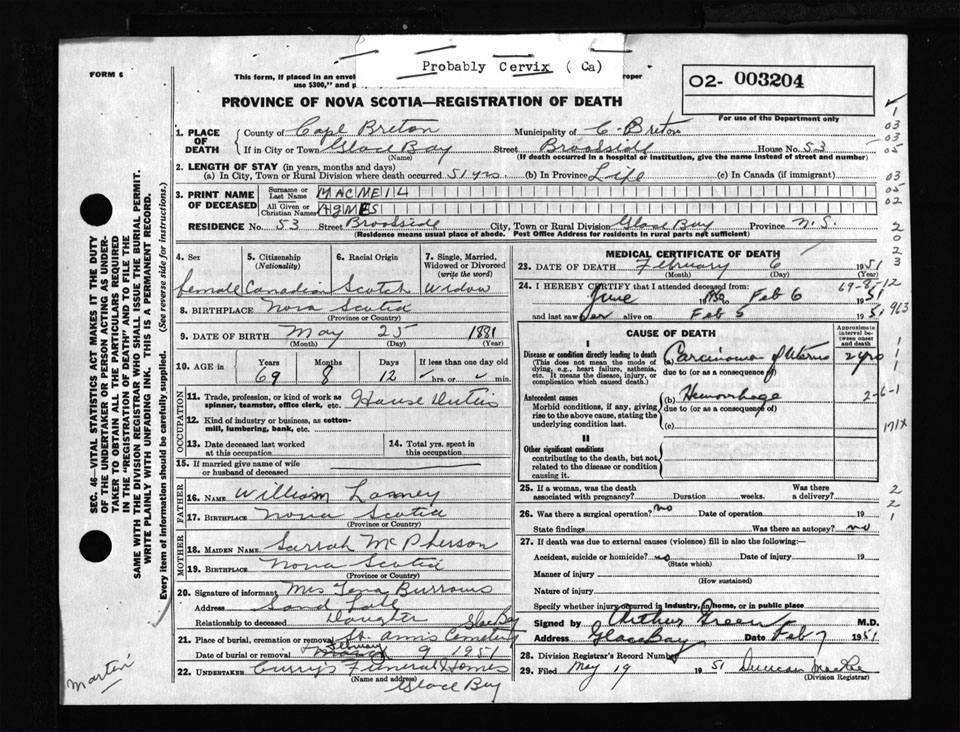 Probably Cervix (Ca)
FORM 6
This form, if placed in an envel
oper
use $300," and p
O2- 003204
For use of the Department only
PROVINCE OF NOVA SCOTIA—REGISTRATION OF DEATH
1. PLACE OF DEATH
County of Cape Breton Municipality of C. Breton
If in City or Town Glace Bay Street Brookside House No. 53
(Name) (If death occurred in a hospital or institution, give the name instead of street and number)
2. LENGTH OF STAY (in years, months and days)
(a) In City, Town or Rural Division where death occurred 51 yrs. (b) In Province Life (c) In Canada (if immigrant)
3. PRINT NAME OF DECEASED
Surname or Last Name MACNEIL
All Given or Christian Names AGNES
RESIDENCE No. 53 Street Brookside City, Town or Rural Division Glace Bay Province N.S.
(Residence means usual place of abode. Post Office Address for residents in rural parts not sufficient)
4. Sex 5. Citizenship (Nationality) 6. Racial Origin 7. Single, Married, Widowed or Divorced (write the word)
female Canadian Scotch Widow
8. BIRTHPLACE Nova Scotia
(Province or Country)
9. DATE OF BIRTH May 25 1881
(Month) (Day) (Year)
10. AGE in Years Months Days If less than one day old
69 8 12 hrs. or min.
OCCUPATION
11. Trade, profession, or kind of work as spinner, teamster, office clerk, etc. House Duties
12. Kind of industry or business, as cotton-mill, lumbering, bank, etc.
13. Date deceased last worked at this occupation
14. Total yrs. spent in this occupation
15. If married give name of wife or husband of deceased
FATHER
16. NAME William
17. BIRTHPLACE Nova Scotia
(Province or Country)
MOTHER
18. MAIDEN NAME Sarrah McPherson
19. BIRTHPLACE Nova Scotia
(Province or Country)
20. Signature of informant Mrs Tena Burrows
Address Sand Lake
Relationship to deceased Daughter Glace Bay
21. Place of burial, cremation or removal St. Anns Cemetery
February
Date of burial or removal 9 1951
22. UNDERTAKER Curry's Funeral Homes
(Name and address)
Glace Bay
MEDICAL CERTIFICATE OF DEATH
23. DATE OF DEATH February 6 1951
(Month) (Day) (Year)
24. I HEREBY CERTIFY that I attended deceased from:
June 1950 Feb 6 1951
and last saw her alive on Feb 5 1951
CAUSE OF DEATH
Approximate interval between onset and death
I
Disease or condition directly leading to death (a) Carcinoma of Uterus 2 yrs
(This does not mean the mode of dying, e.g., heart failure, asthenia, etc. It means the disease, injury, or complication which caused death.)
due to (or as a consequence of)
Antecedent causes (b) Hemorrhage
Morbid conditions, if any, giving rise to the above cause, stating the underlying condition last.
due to (or as a consequence of)
(c)
II
Other significant conditions contributing to the death, but not related to the disease or condition causing it.
25. If a woman, was the death associated with pregnancy? Duration weeks. Was there a delivery?
26. Was there a surgical operation? no Date of operation 19
State findings Was there an autopsy? no
27. If death was due to external causes (violence) fill in also the following:—
Accident, suicide or homicide? no Date of injury 19
(State which)
Manner of injury
(How sustained)
Nature of injury
Specify whether injury occurred in industry, in home, or in public
Signed by Arthur Green M.D.
Address Glace Bay Date Feb 7 1951
28. Division Registrar's Record Number
29. Filed May 19 1951 Duncan
(Division Registrar)
SEC. 46—VITAL STATISTICS ACT MAKES IT THE DUTY
OF THE UNDERTAKER OR PERSON ACTING AS UNDER-
TAKER TO OBTAIN ALL THE PARTICULARS REQUIRED
IN THE "REGISTRATION OF DEATH" AND TO FILE THE
SAME WITH THE DIVISION REGISTRAR WHO SHALL ISSUE THE BURIAL PERMIT.
WRITE PLAINLY WITH UNFADING INK. THIS IS A PERMANENT RECORD.
Every item of information should be carefully supplied. (See reverse side for instructions.)
1
03
03
05
03
05
02
2
0
2
2
3
69-8-12
913
1
1
1
2-6-1
171X
2
2
1